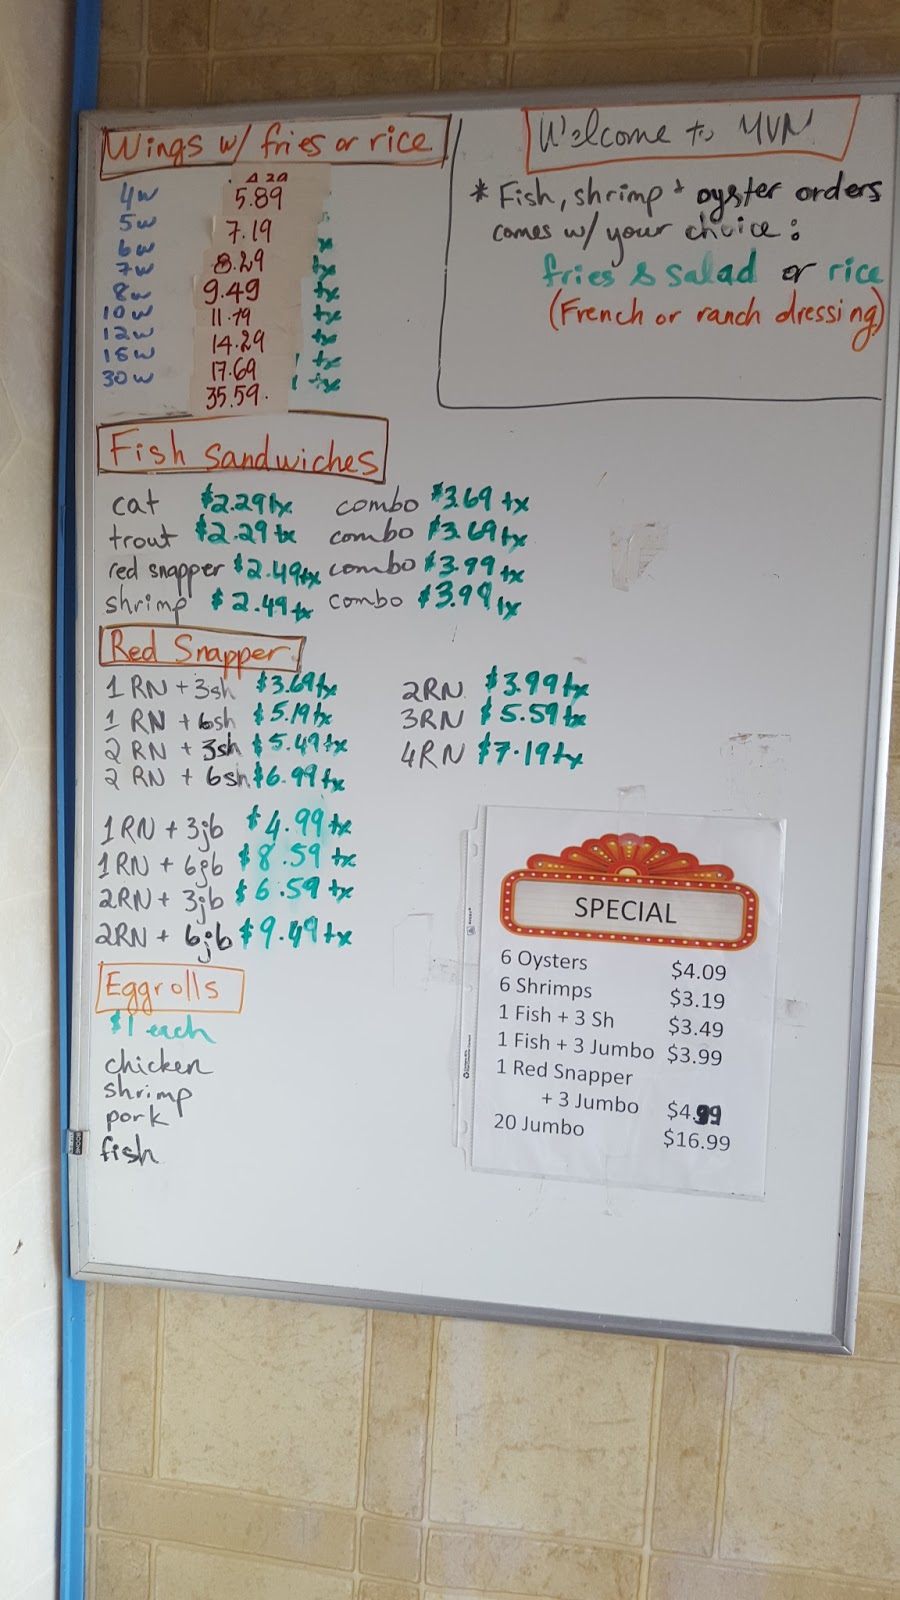 Wings w/ fries or rice
4w
5w 5.89
6w 7.19
7w 8.29
8w 9.49 tx
10w 11.79 tx
12w 14.29 tx
16w 17.69 tx
30w 35.59 tx
Welcome to MVM
* Fish, shrimp + oyster orders
comes w/ your choice:
fries & salad or rice
(French or ranch dressing)
Fish Sandwiches
cat $2.29tx combo $3.69 tx
trout $2.29 tx combo $3.69 tx
red snapper $2.49tx combo $3.99 tx
shrimp $2.49 tx combo $3.99 tx
Red Snapper
1 RN + 3sh $3.69tx 2RN $3.99tx
1 RN + 6sh $5.19tx 3RN $5.59tx
2 RN + 3sh $5.49tx 4RN $7.19tx
2 RN + 6sh $6.99tx
1RN + 3jb $4.99tx
1RN + 6jb $8.59 tx
2RN + 3jb $6.59 tx
2RN + 6jb $9.49tx
Eggrolls
$1 each
chicken
shrimp
pork
fish
SPECIAL
6 Oysters $4.09
6 Shrimps $3.19
1 Fish + 3 Sh $3.49
1 Fish + 3 Jumbo $3.99
1 Red Snapper
+ 3 Jumbo $4.99
20 Jumbo $16.99